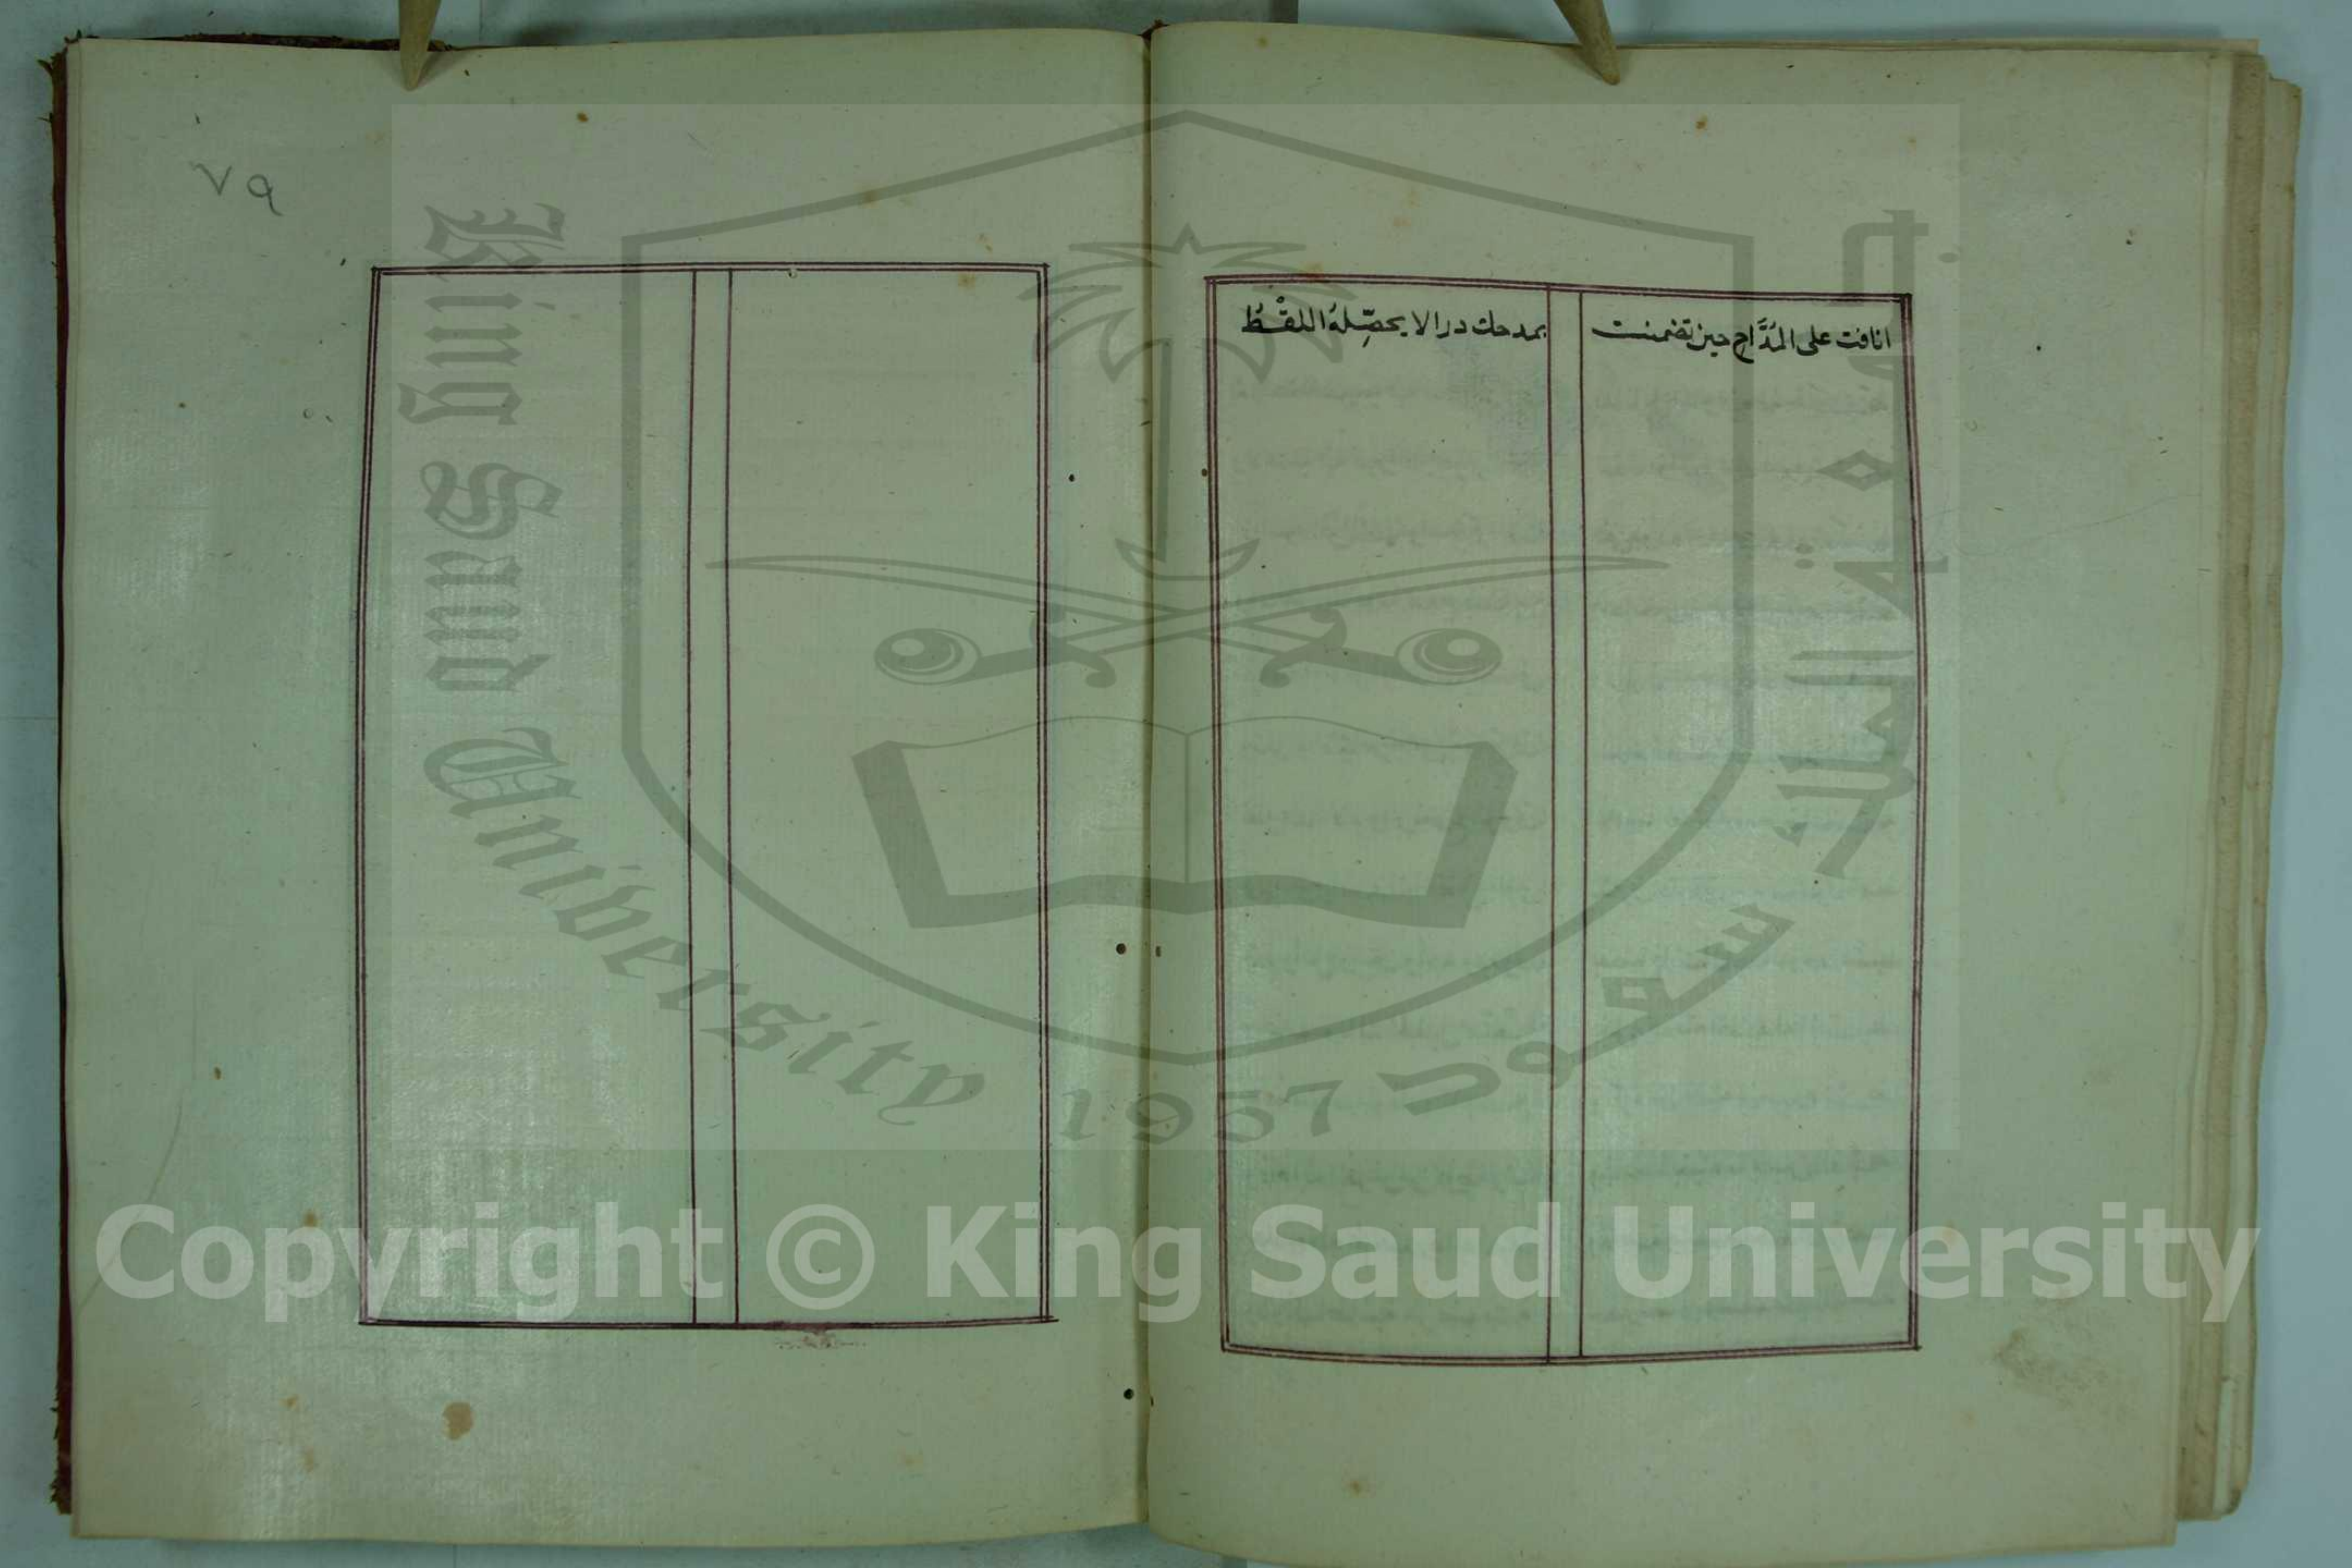 انافت على المُدَّاح حين تضمنت بمدحك درا لا يحصِّلهُ اللقْطُ
٧٩
King Saud University
1957
جامعة الملك سعود
Copyright © King Saud University